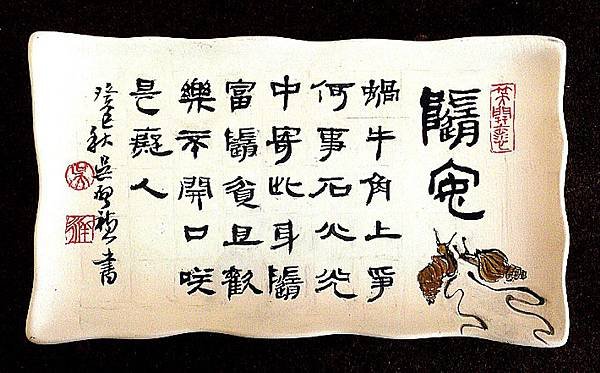 隨安
蝸牛角上爭
何事石火光
中寄此身隨
富隨貧且歡
樂不開口咲
是癡人
癸巳秋吳書